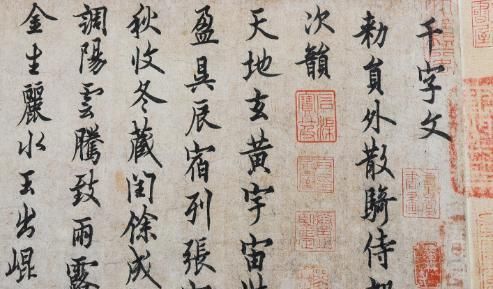 千字文
勑員外散騎侍
次韻
天地玄黃宇宙
盈昃辰宿列張
秋收冬藏閏餘成
調陽雲騰致雨露
金生麗水玉出崐